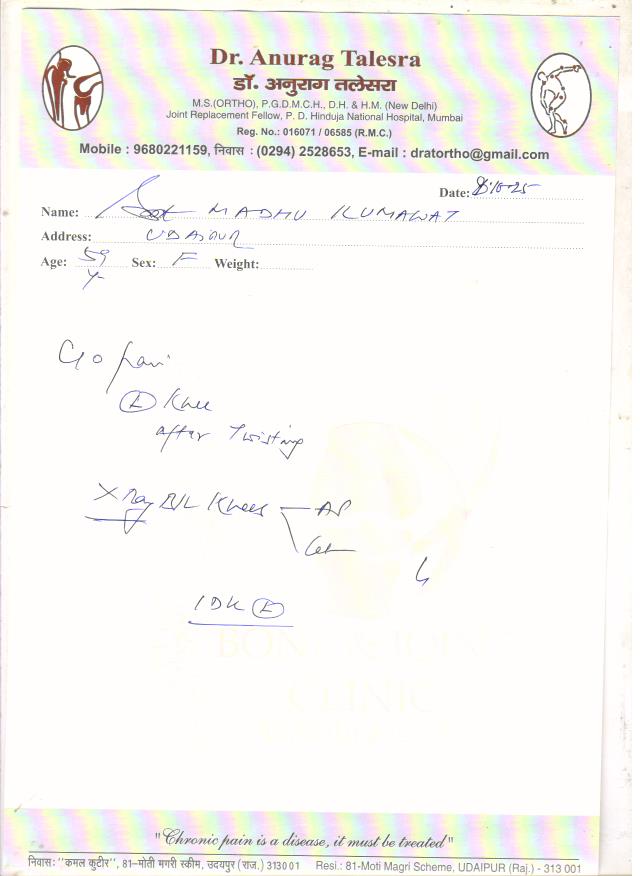 Dr. Anurag Talesra
डॉ. अनुराग तलेसरा
M.S.(ORTHO), P.G.D.M.C.H., D.H. & H.M. (New Delhi)
Joint Replacement Fellow, P. D. Hinduja National Hospital, Mumbai
Reg. No.: 016071 / 06585 (R.M.C.)
Mobile : 9680221159, निवास : (0294) 2528653, E-mail : dratortho@gmail.com
Date: 8/10-25
Name: MADHU KUMAWAT
Address: UDAIPUR
Age: 59 Y Sex: F Weight:
C/o Pain
Ⓛ Knee
after Twisting
X Ray B/L Knees — AP
Lat
IDK Ⓛ
BONE & JOINT
CLINIC
"Chronic pain is a disease, it must be treated"
निवासः "कमल कुटीर", 81–मोती मगरी स्कीम, उदयपुर (राज.) 313001 Resi.: 81-Moti Magri Scheme, UDAIPUR (Raj.) - 313 001